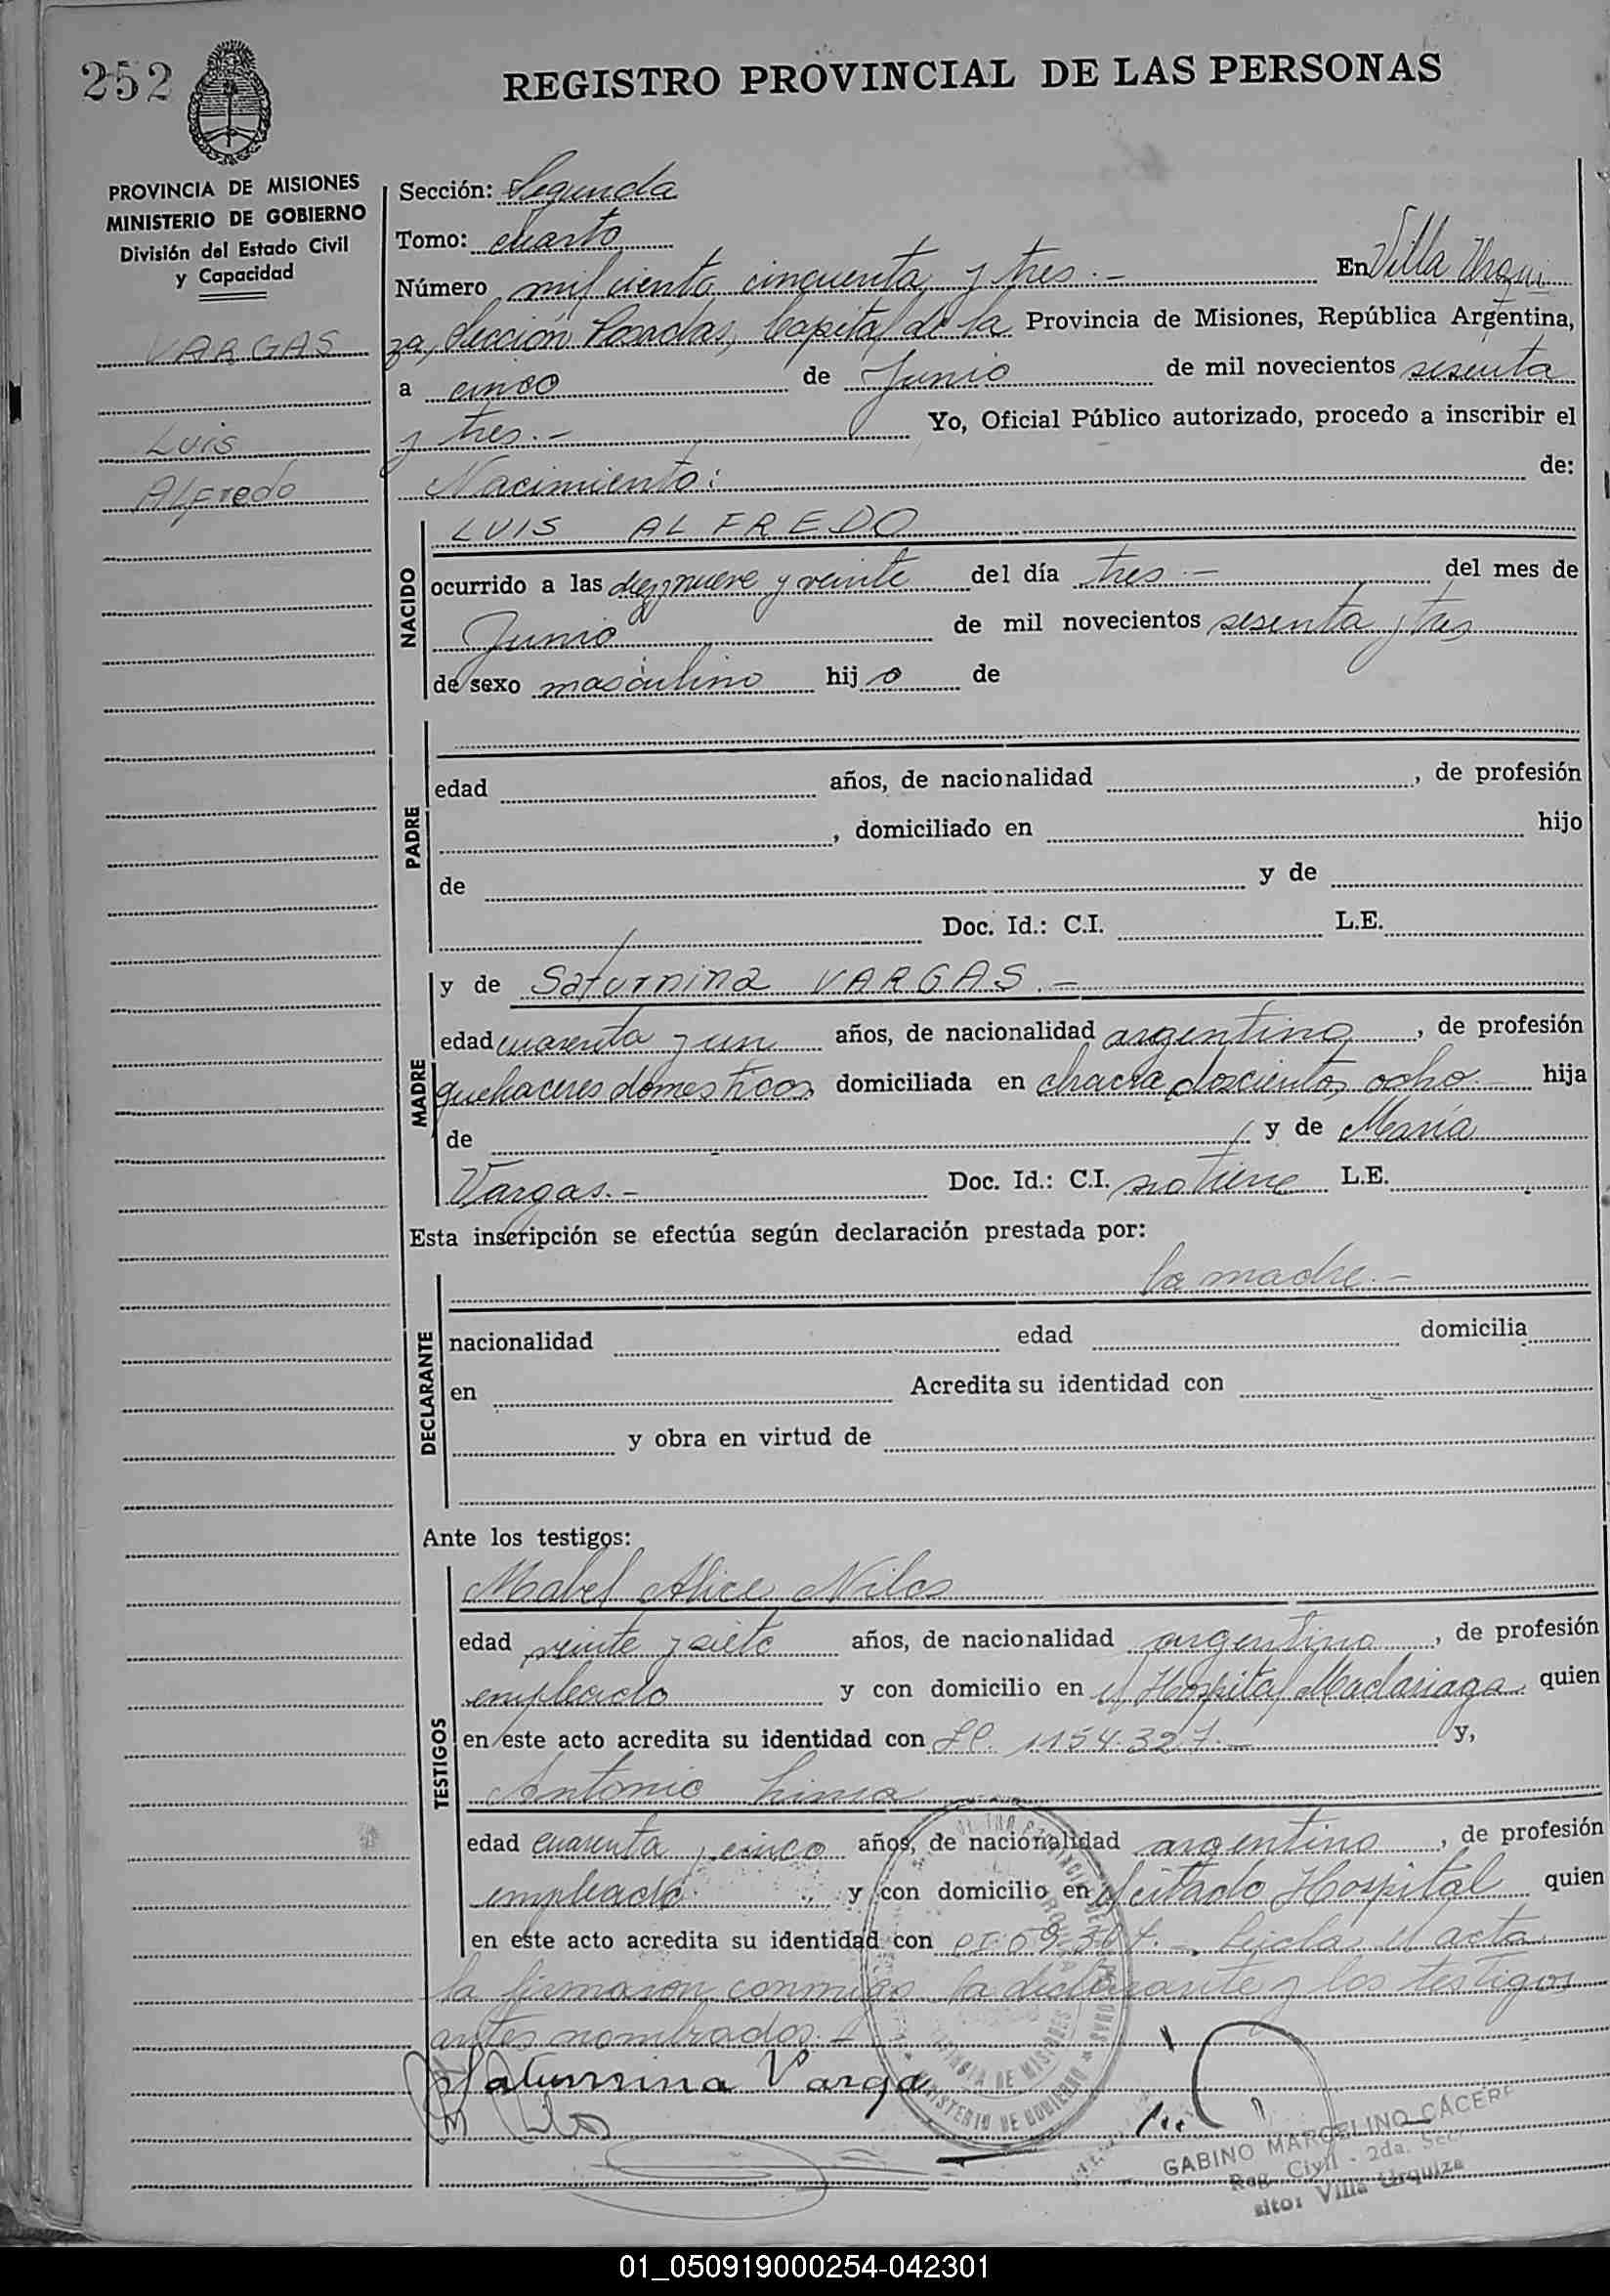 252
REGISTRO PROVINCIAL DE LAS PERSONAS
PROVINCIA DE MISIONES
MINISTERIO DE GOBIERNO
División del Estado Civil
y Capacidad
VARGAS
Luis
Alfredo
Sección: Segunda
Tomo: cuarto
Número mil ciento cincuenta y tres.- En Villa Urqui
za, Sección Posadas, Capital de la Provincia de Misiones, República Argentina,
a cinco de Junio de mil novecientos sesenta
y tres.- Yo, Oficial Público autorizado, procedo a inscribir el
Nacimiento: de:
NACIDO
LUIS ALFREDO
ocurrido a las diez y nueve y veinte del día tres.- del mes de
Junio de mil novecientos sesenta y tres
de sexo masculino hijo de
PADRE
edad años, de nacionalidad , de profesión
, domiciliado en hijo
de y de
Doc. Id.: C.I. L.E.
MADRE
y de Saturnina VARGAS.-
edad cuarenta y un años, de nacionalidad argentina, de profesión
quehaceres domesticos domiciliada en chacra doscientos ocho.- hija
de y de María
Vargas.- Doc. Id.: C.I. no tiene L.E.
Esta inscripción se efectúa según declaración prestada por:
DECLARANTE
la madre.-
nacionalidad edad domicilia
en Acredita su identidad con
y obra en virtud de
Ante los testigos:
TESTIGOS
Mabel Alice
edad veinte y siete años, de nacionalidad argentina, de profesión
empleada y con domicilio en el Hospital Madariaga quien
en este acto acredita su identidad con 1154.327.- y,
Antonio
edad cuarenta y cinco años, de nacionalidad argentino, de profesión
empleado y con domicilio en el citado Hospital quien
en este acto acredita su identidad con el acta
la firmaron conmigo la declarante y los testigos
antes nombrados.-
Saturnina Varga
MINISTERIO DE GOBIERNO
GABINO MARCELINO CACERE
Reg. Civil - 2da. Sec
sito: Villa Urquiza
01_050919000254-042301